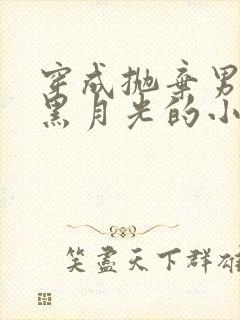 穿成抛弃男
黑月光的小
笑盡天下群雄